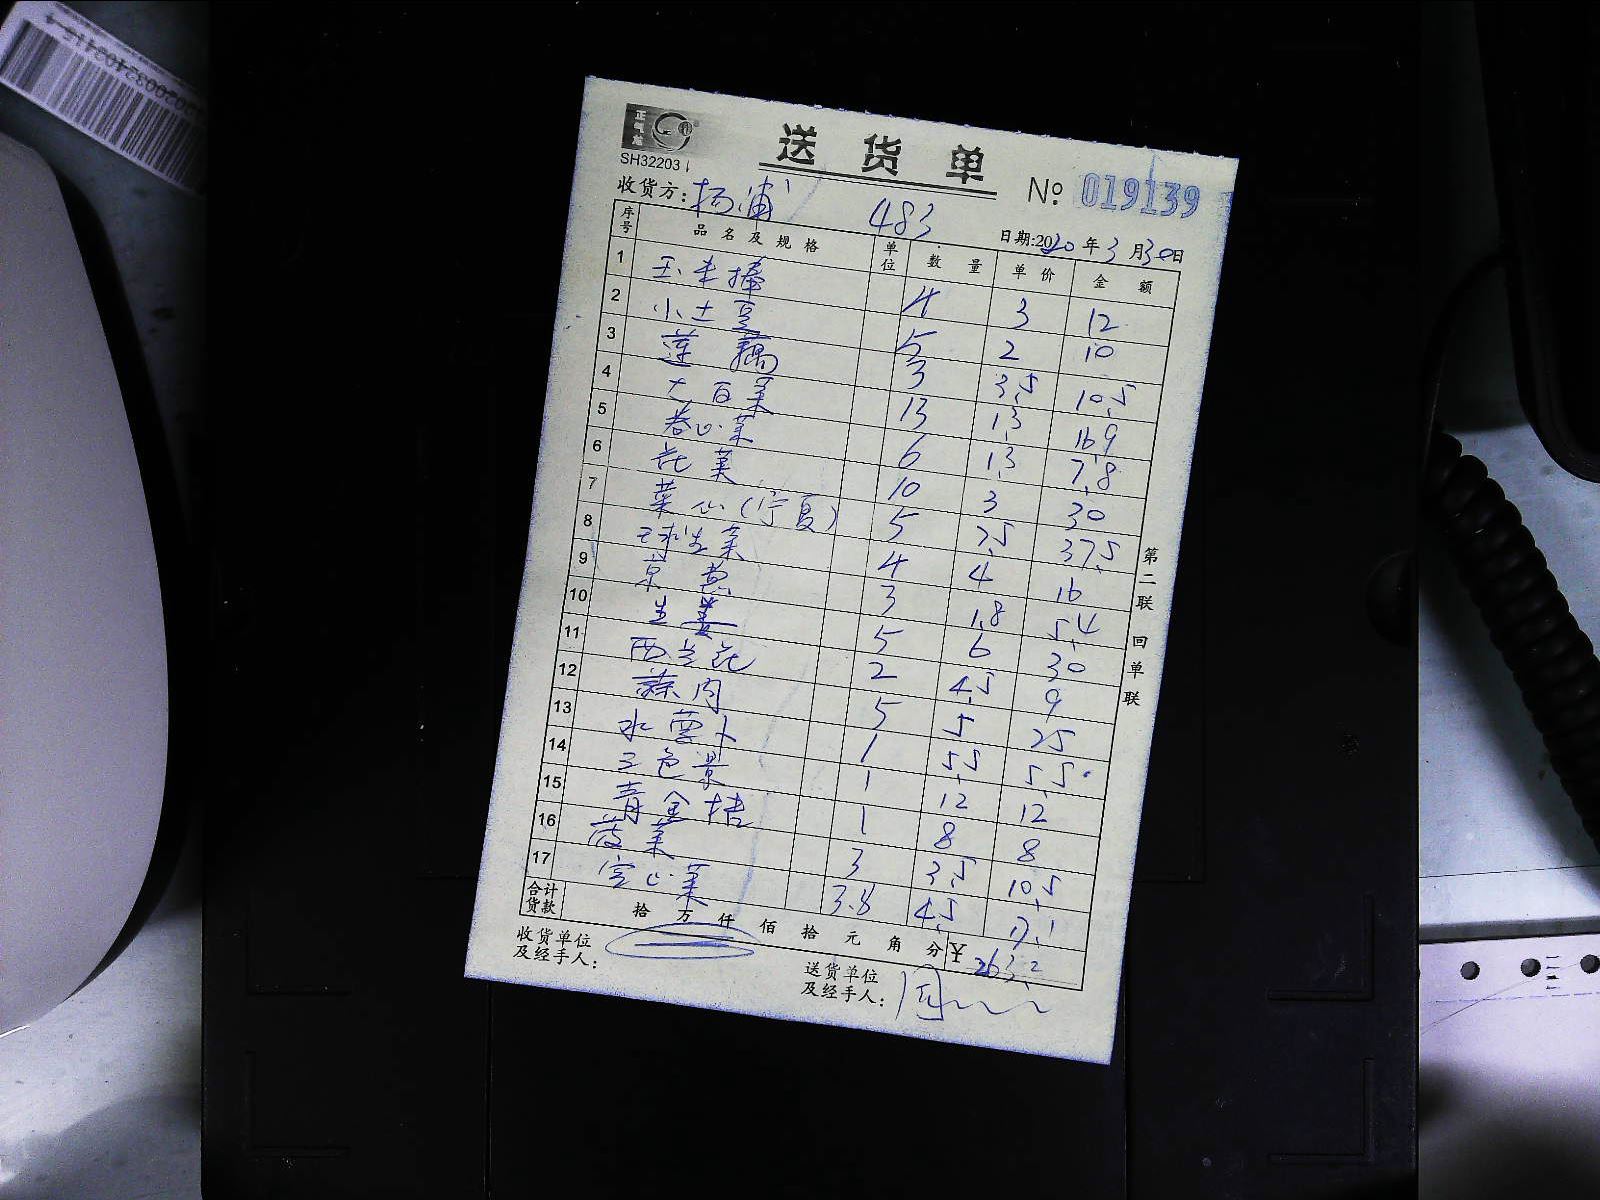 正气龙
SH32203
送货单
№: 019139
收货方: 杨浦 483
日期:2020年3月30日
序号 品名及规格 单位 数量 单价 金额
1 玉米棒 4 3 12
2 小土豆 5 2 10
3 莲藕 3 3.5 10.5
4 大白菜 13 1.3 16.9
5 卷心菜 6 1.3 7.8
6 花菜 10 3 30
7 菜心(宁夏) 5 7.5 37.5
8 球生菜 4 4 16
9 京葱 3 1.8 5.4
10 生姜 5 6 30
11 西兰花 2 4.5 9
12 蒜肉 5 5 25
13 水萝卜 1 5.5 5.5
14 三色堇 1 12 12
15 青金桔 1 8 8
16 菠菜 3 3.5 10.5
17 空心菜 3.8 4.5 17.1
合计货款 拾 万 仟 佰 拾 元 角 分 ¥ 263.2
收货单位及经手人:
送货单位及经手人:
第二联 回单联